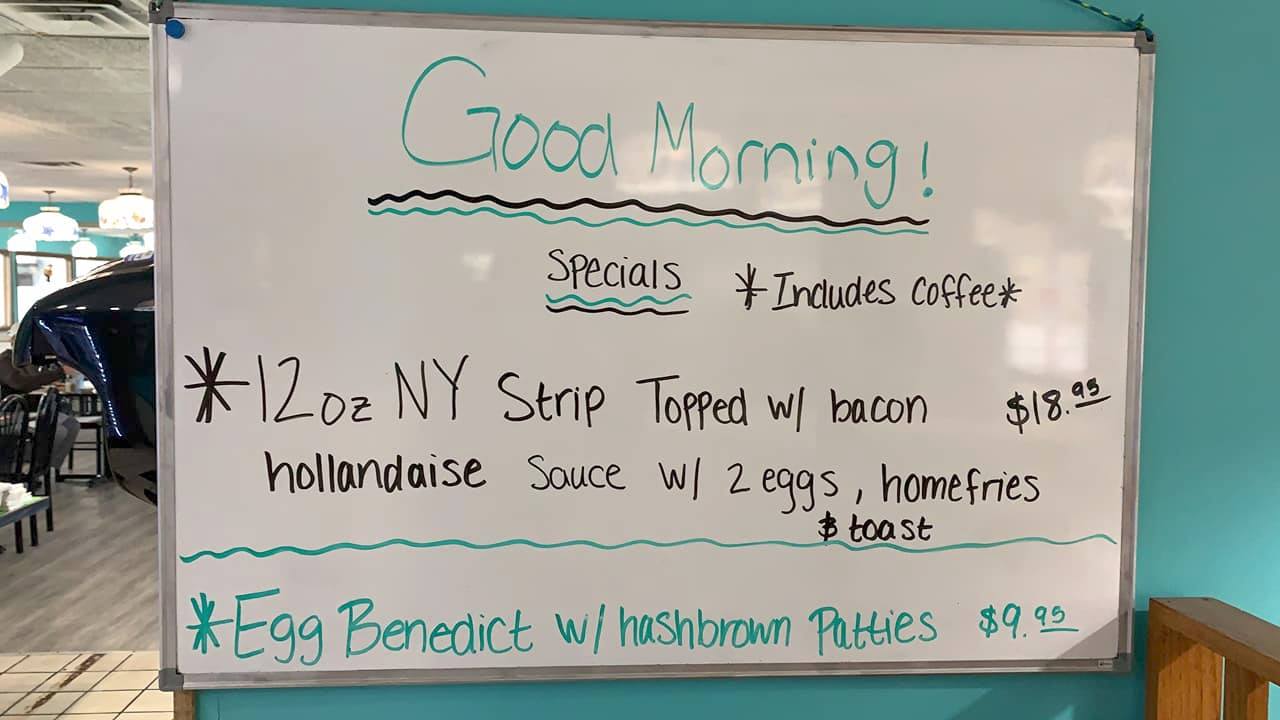 Good Morning!
Specials *Includes Coffee*
*12oz NY Strip Topped w/ bacon $18.95
hollandaise Sauce w/ 2 eggs, homefries
$ toast
*Egg Benedict w/hashbrown Patties $9.95